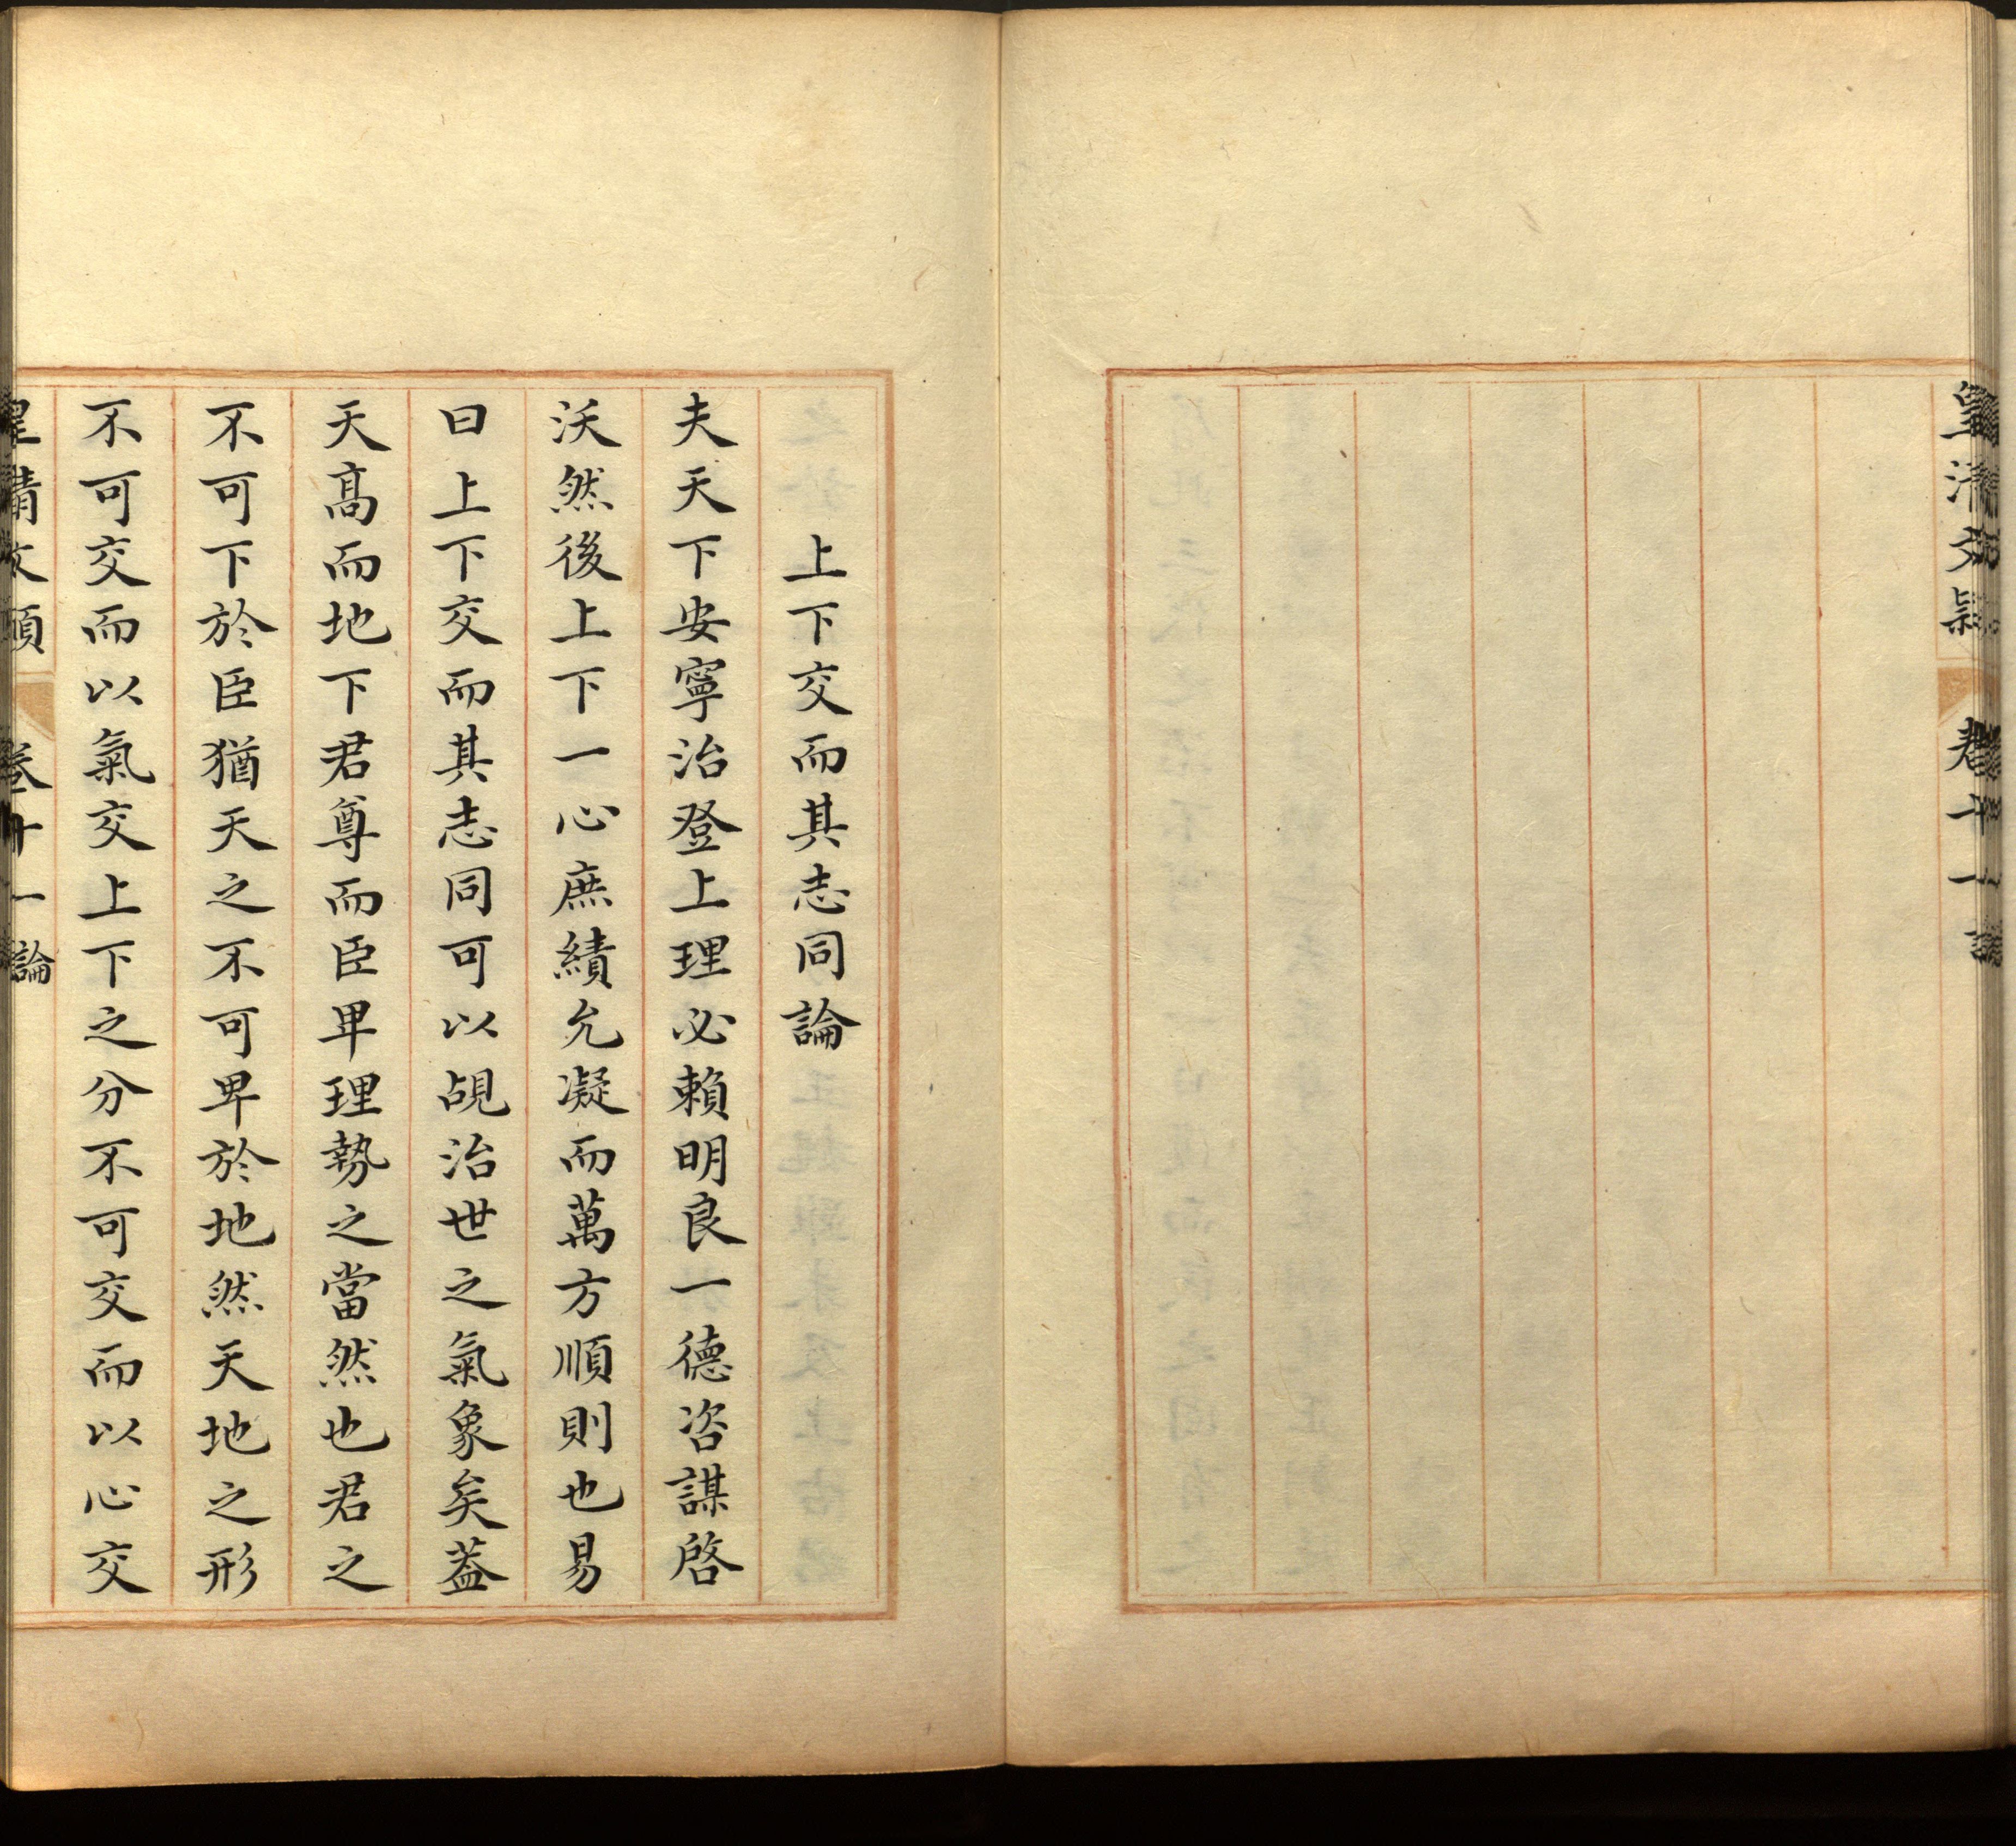 皇清文潁 卷十一 論
上下交而其志同論
夫天下安寧治登上理必賴明良一德咨謀啓
沃然後上下一心庶績允凝而萬方順則也易
曰上下交而其志同可以覘治世之氣象矣葢
天高而地下君尊而臣卑理勢之當然也君之
不可下於臣猶天之不可卑於地然天地之形
不可交而以氣交上下之分不可交而以心交
皇清文潁 卷十一 論